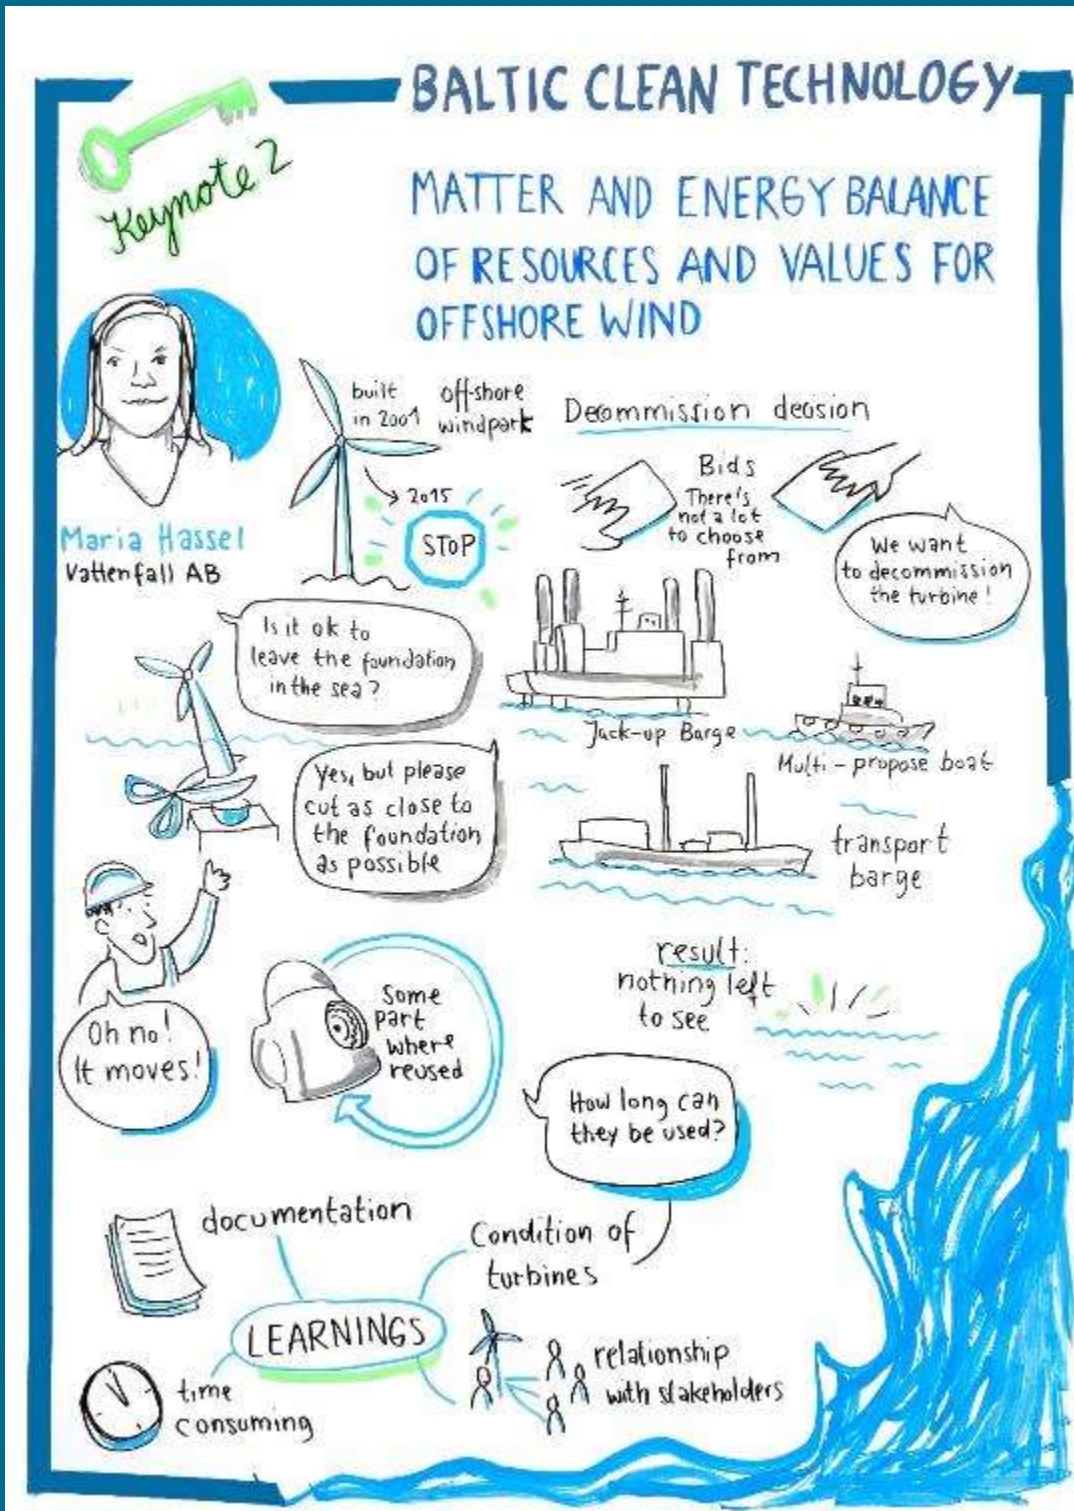 BALTIC CLEAN TECHNOLOGY
Keynote 2
MATTER AND ENERGY BALANCE
OF RESOURCES AND VALUES FOR
OFFSHORE WIND
Maria Hassel
Vattenfall AB
built
in 2001
off-shore
windpark
2015
STOP
Decommission decision
Bids
There's
not a lot
to choose
from
We want
to decommission
the turbine!
Is it ok to
leave the foundation
in the sea?
Yes, but please
cut as close to
the foundation
as possible
Jack-up Barge
Multi-propose boat
transport
barge
Oh no!
It moves!
Some
part
where
reused
result:
nothing left
to see
How long can
they be used?
documentation
Condition of
turbines
LEARNINGS
time
consuming
relationship
with stakeholders